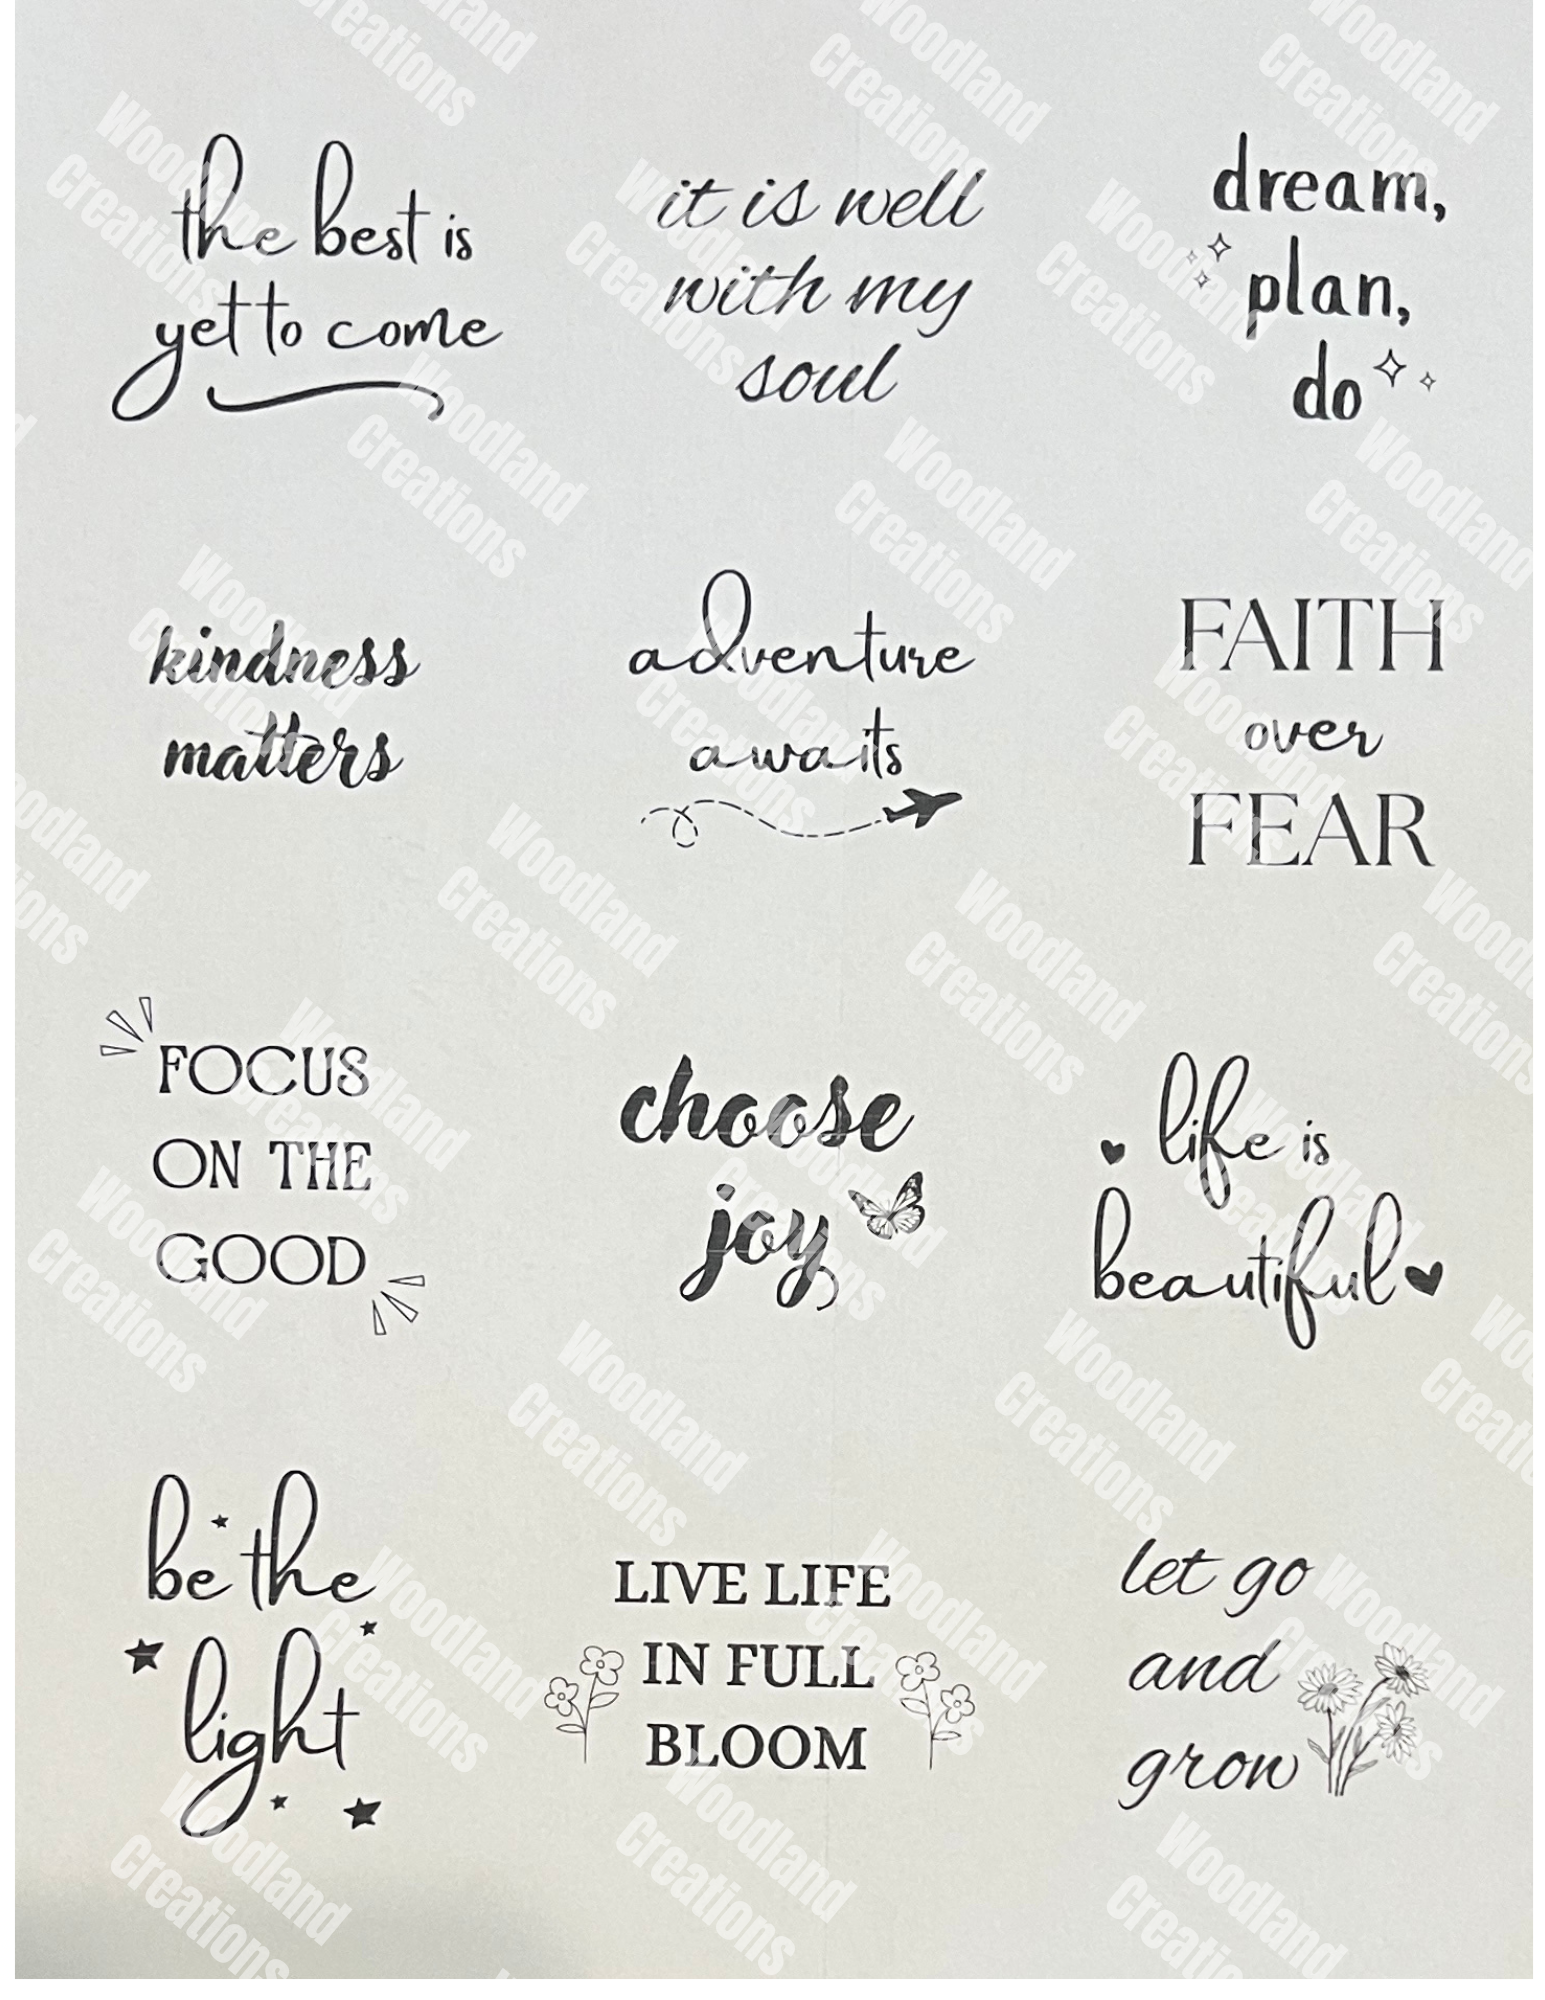 the best is
yet to come
it is well
with my
soul
dream,
plan,
do
kindness
matters
adventure
awaits
FAITH
over
FEAR
FOCUS
ON THE
GOOD
choose
joy
life is
beautiful
be the
light
LIVE LIFE
IN FULL
BLOOM
let go
and
grow
Woodland
Creations